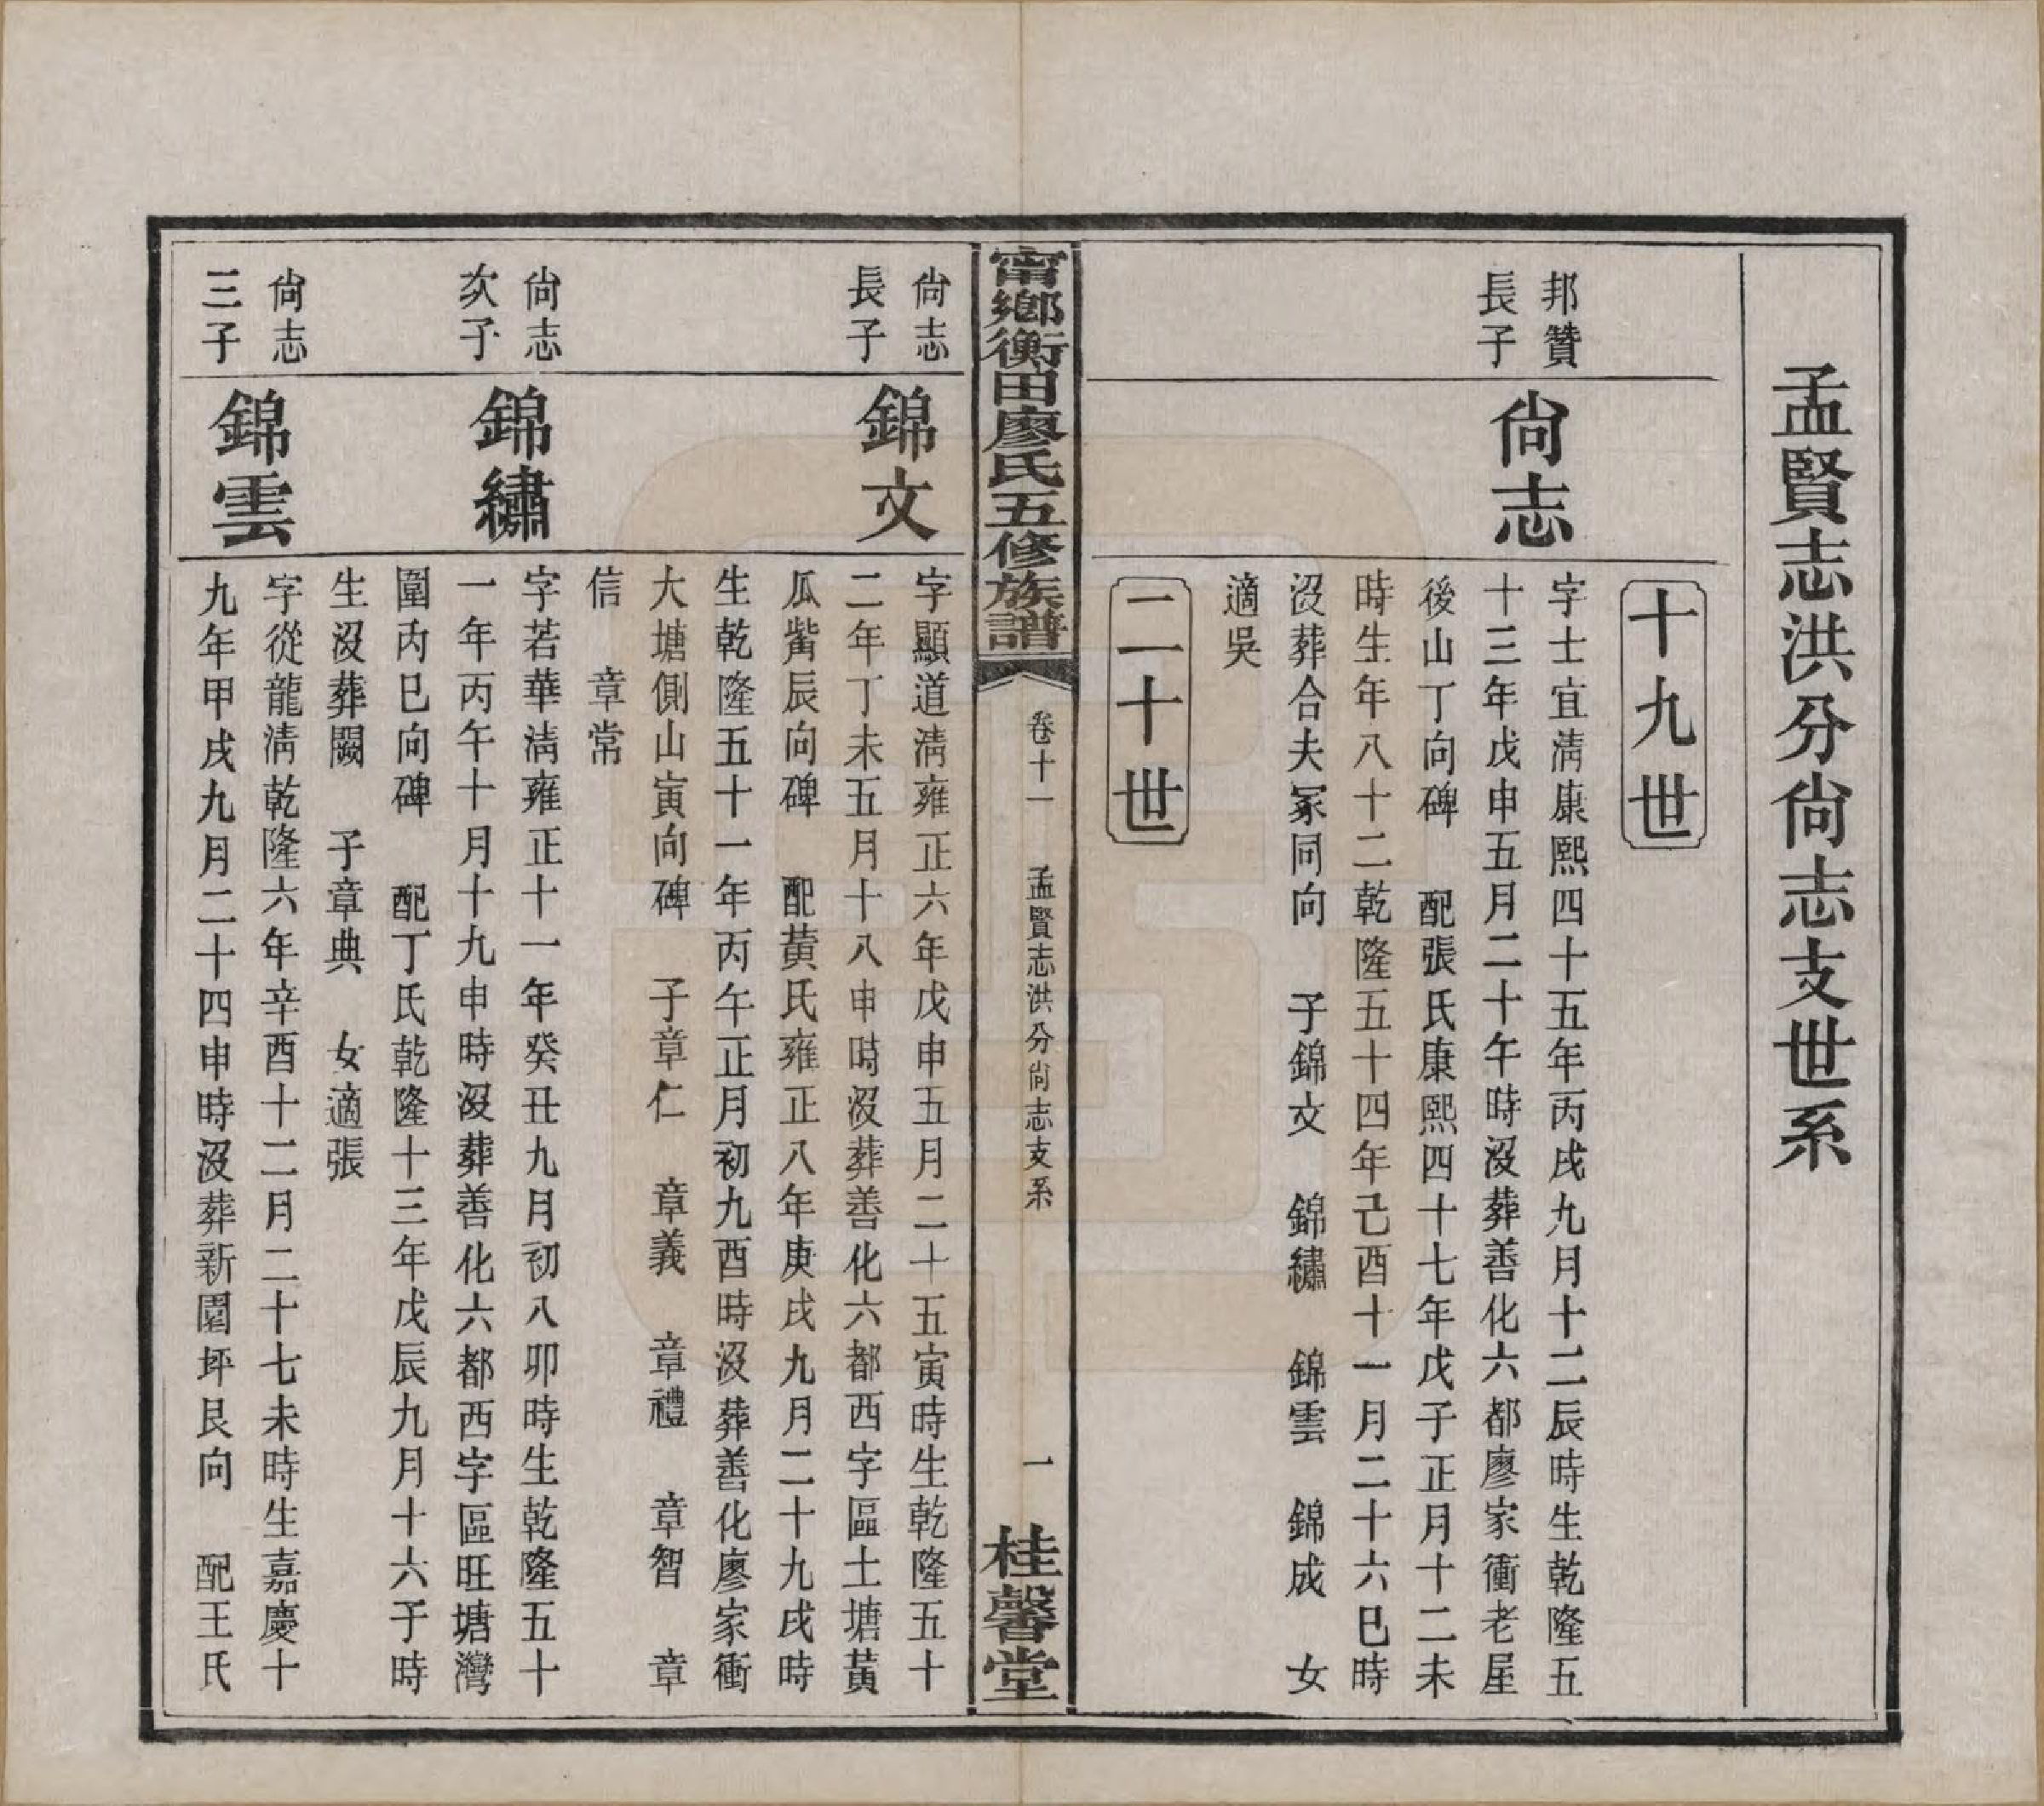 孟賢志洪分尙志支世系
十九世
邦贊
長子
尙志
字士宜淸康熙四十五年丙戌九月十二辰時生乾隆五
十三年戊申五月二十午時沒葬善化六都廖家衝老屋
後山丁向碑　配張氏康熙四十七年戊子正月十二未
時生年八十二乾隆五十四年己酉十一月二十六巳時
沒葬合夫冢同向　子錦文　錦繡　錦雲　錦成　女
適吳
二十世
甯鄉衡田廖氏五修族譜
卷十一　孟賢志洪分尙志支系
一
桂馨堂
尙志
長子
錦文
字顯道淸雍正六年戊申五月二十五寅時生乾隆五十
二年丁未五月十八申時沒葬善化六都西字區土塘黃
瓜觜辰向碑　配黃氏雍正八年庚戌九月二十九戌時
生乾隆五十一年丙午正月初九酉時沒葬善化廖家衝
大塘側山寅向碑　子章仁　章義　章禮　章智　章
信　章常
尙志
次子
錦繡
字若華淸雍正十一年癸丑九月初八卯時生乾隆五十
一年丙午十月十九申時沒葬善化六都西字區旺塘灣
圍丙巳向碑　配丁氏乾隆十三年戊辰九月十六子時
生沒葬闕　子章典　女適張
尙志
三子
錦雲
字從龍淸乾隆六年辛酉十二月二十七未時生嘉慶十
九年甲戌九月二十四申時沒葬新園坪艮向　配王氏